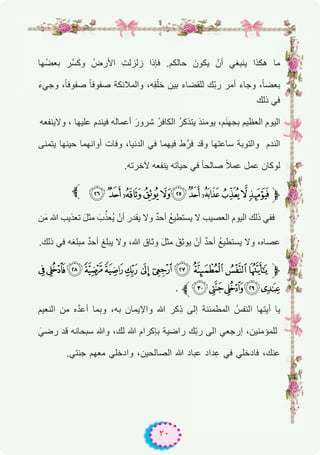 ما هكذا ينبغي أنْ يكون حالكم. فإذا زلزلتِ الأرضُ وكَسَّر بعضُها
بعضاً، وجاء أمر ربِّك للقضاء بين خلْقِه، والملائكة صفوفاً صفوفاً، وجيءَ
في ذلك
اليوم العظيم بجهنم، يومئذ يتذكرُ الكافرُ شرورَ أعماله فيندم عليها ، ولاينفعه
الندم والتوبة ساعتها وقد فرَّط فيهما في الدنيا، وفات أوانهما حينها يتمنى
لوكان عمل عملاً صالحاً في حياته ينفعه لآخرته.
﴿ فَيَوْمَئِذٍ لَّا يُعَذِّبُ عَذَابَهُۥٓ أَحَدٌ ۝٢٥ وَلَا يُوثِقُ وَثَاقَهُۥٓ أَحَدٌ ۝٢٦ ﴾
ففي ذلك اليوم العصيب لا يستطيعُ أحدٌ ولا يقدر أنْ يُعذِّبَ مثلَ تعذيب الله مَن
عصاه، ولا يستطيعُ أحدٌ أنْ يوثقَ مثلَ وثاق الله، ولا يبلغُ أحدٌ مبلغه في ذلك.
﴿ يَٰٓأَيَّتُهَا ٱلنَّفْسُ ٱلْمُطْمَئِنَّةُ ۝٢٧ ٱرْجِعِىٓ إِلَىٰ رَبِّكِ رَاضِيَةً مَّرْضِيَّةً ۝٢٨ فَٱدْخُلِى فِى
عِبَٰدِى ۝٢٩ وَٱدْخُلِى جَنَّتِى ۝٣٠ ﴾ .
يا أيتها النفسُ المطمئنة إلى ذِكر الله والإيمان به، وبما أعدَّه من النعيم
للمؤمنين، إرجعي الى ربِّك راضية بإكرام الله لك، والله سبحانه قد رضيَ
عنك، فادخلي في عِداد عباد الله الصالحين، وادخلي معهم جنتي.
٣٠